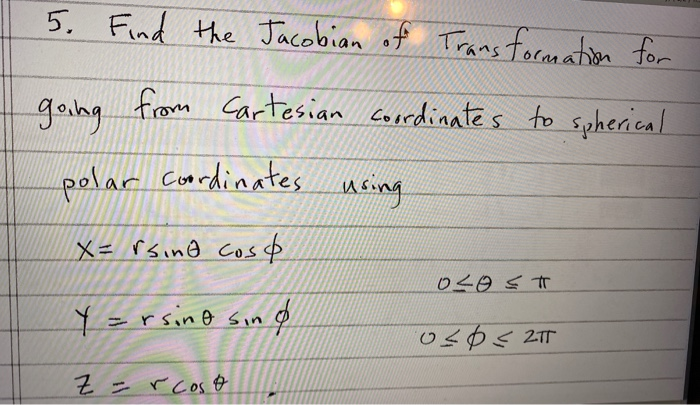 5. Find the Jacobian of Transformation for
going from Cartesian coordinates to spherical
polar coordinates using
X = r sinθ cos ϕ
0 ≤ θ ≤ π
Y = r sin θ sin ϕ
0 ≤ ϕ ≤ 2π
Z = r cos θ .